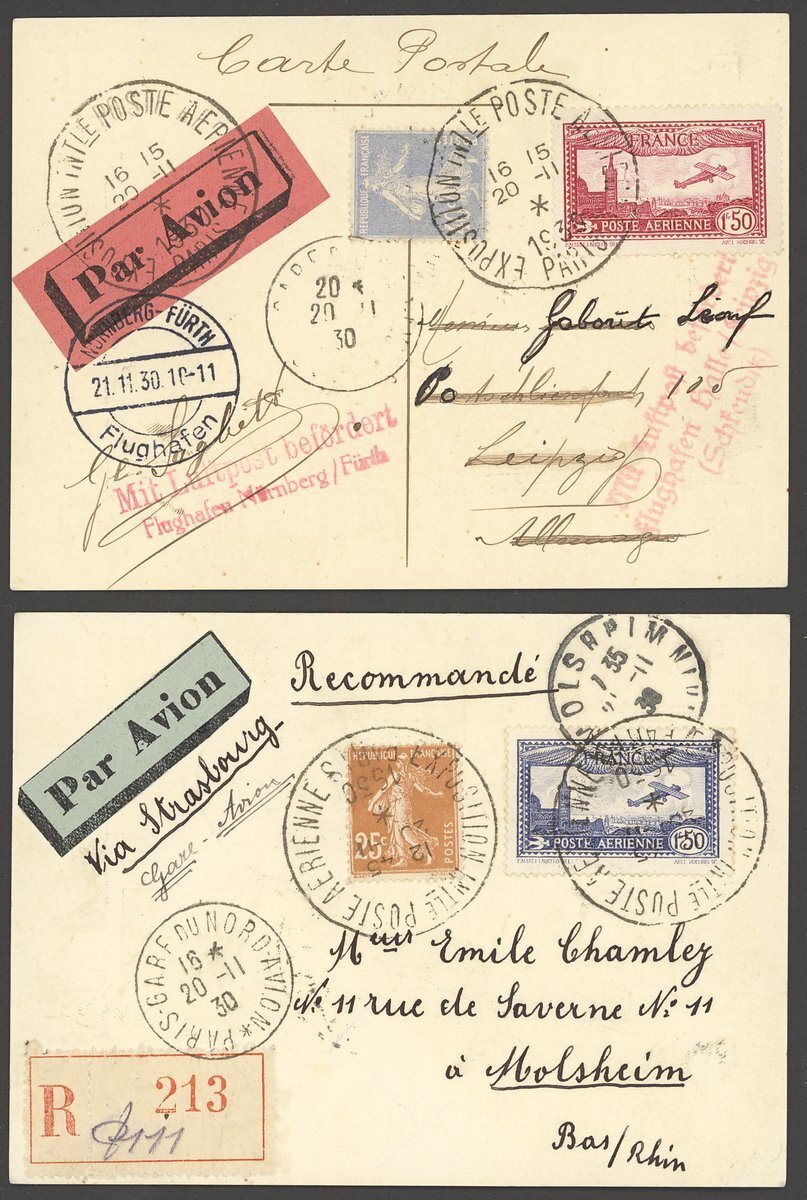 Carte Postale
EXPOSITION INTLE POSTE AERIENNE
16 15
20 -11
*
1930
PARIS
Par Avion
REPUBLIQUE FRANÇAISE
EXPOSITION INTLE POSTE AERIENNE
16 15
20 -11
*
1930
PARIS
FRANCE
POSTE AERIENNE
1F50
NÜRNBERG-FÜRTH
21.11.30.10-11
Flughafen
20 *
20 -11
30
Monsieur Gabouït Léouf
Postschliessfach 105
Leipzig
Allemagne
Mit Luftpost befördert
Flughafen Nürnberg/Fürth
Mit Luftpost befördert
Flughafen Halle/Leipzig
(Schkeuditz)
Par Avion
Recommandé
MOLSHEIM
35
-11
30
Via Strasbourg
Gare - Avion
REPUBLIQUE FRANÇAISE
25c
POSTES
EXPOSITION INTLE POSTE AERIENNE
12 45
1930
FRANCE
POSTE AERIENNE
1F50
EXPOSITION INTLE POSTE AERIENNE
PARIS-GARE DU NORD-AVION
16 *
20 -11
30
Meur Emile Chamley
No 11 rue de Saverne No 11
à Molsheim
Bas/Rhin
R 213